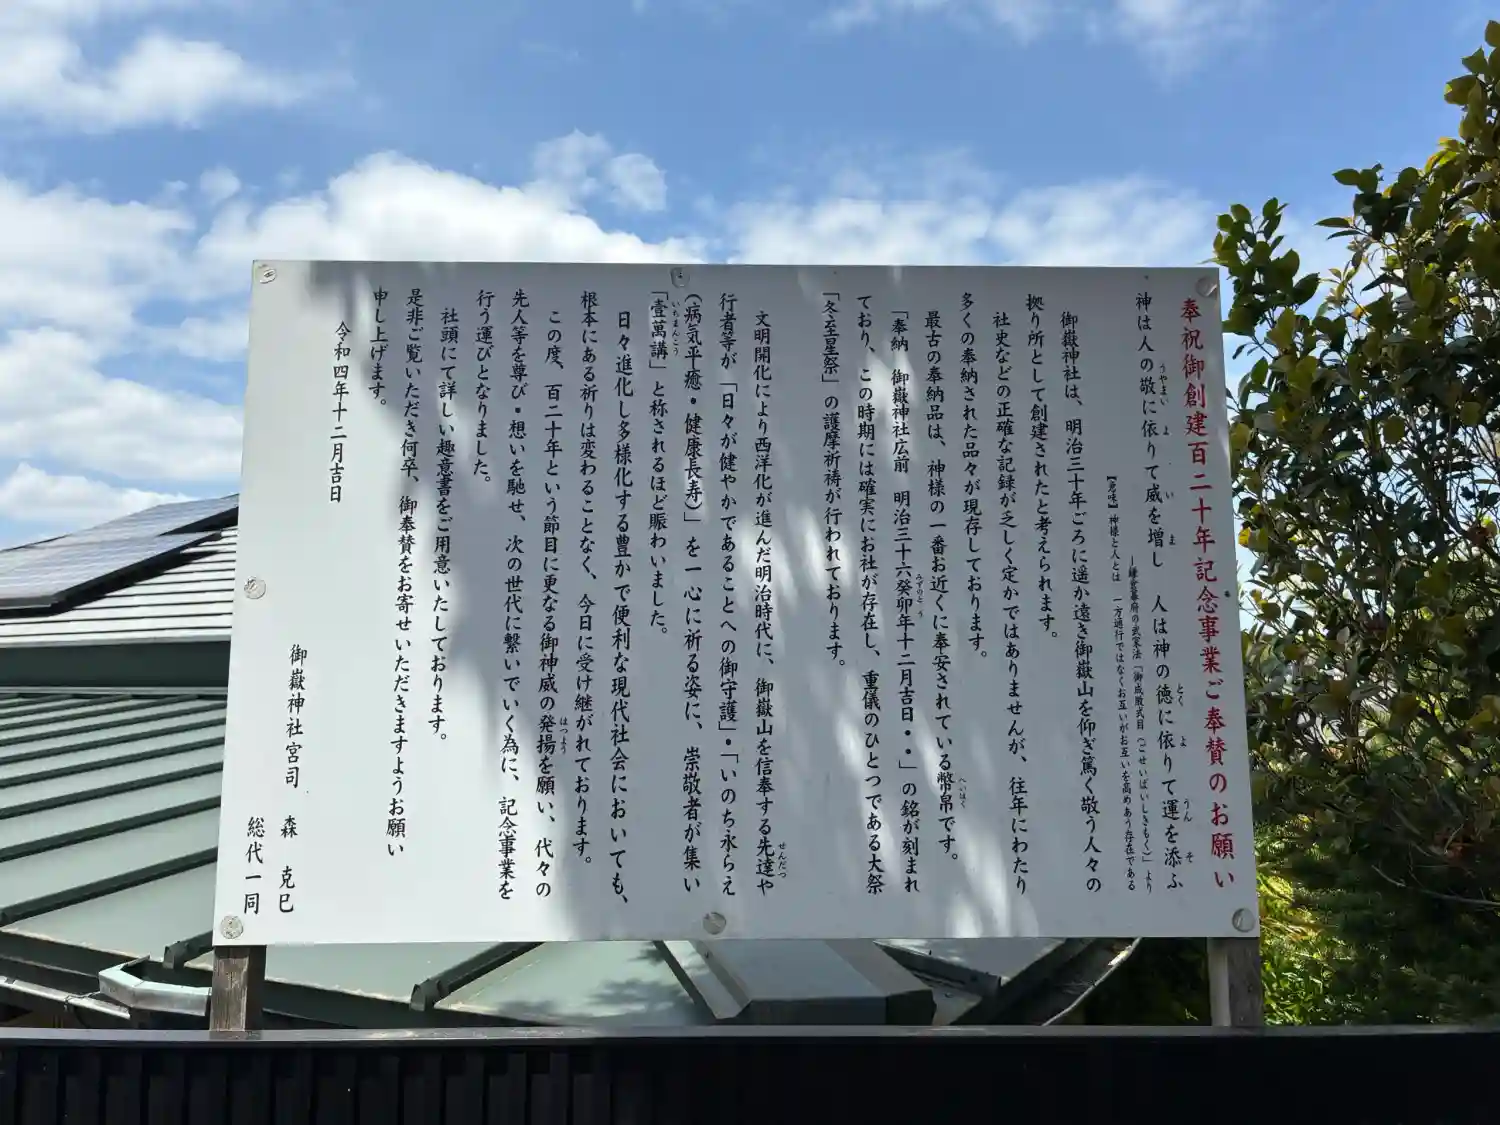 奉祝御創建百二十年記念事業ご奉賛のお願い
神は人の敬に依りて威を増し　人は神の徳に依りて運を添ふ
うやまい　よ　い　ま　とく　よ　うん　そ
―鎌倉幕府の武家法「御成敗式目（ごせいばいしきもく）」より
【意味】神様と人とは　一方通行ではなくお互いがお互いを高めあう存在である
御嶽神社は、明治三十年ごろに遥か遠き御嶽山を仰ぎ篤く敬う人々の
拠り所として創建されたと考えられます。
社史などの正確な記録が乏しく定かではありませんが、往年にわたり
多くの奉納された品々が現存しております。
最古の奉納品は、神様の一番お近くに奉安されている幣帛です。
へいはく
「奉納　御嶽神社広前　明治三十六癸卯年十二月吉日・・」の銘が刻まれ
みずのとう
ており、この時期には確実にお社が存在し、重儀のひとつである大祭
「冬至星祭」の護摩祈祷が行われております。
文明開化により西洋化が進んだ明治時代に、御嶽山を信奉する先達や
せんだつ
行者等が「日々が健やかであることへの御守護」・「いのち永らえ
（病気平癒・健康長寿）」を一心に祈る姿に、崇敬者が集い
「壹萬講」と称されるほど賑わいました。
いちまんこう
日々進化し多様化する豊かで便利な現代社会においても、
根本にある祈りは変わることなく、今日に受け継がれております。
この度、百二十年という節目に更なる御神威の発揚を願い、代々の
はつよう
先人等を尊び・想いを馳せ、次の世代に繋いでいく為に、記念事業を
行う運びとなりました。
社頭にて詳しい趣意書をご用意いたしております。
是非ご覧いただき何卒、御奉賛をお寄せいただきますようお願い
申し上げます。
令和四年十二月吉日
御嶽神社宮司　森　克巳
総代一同